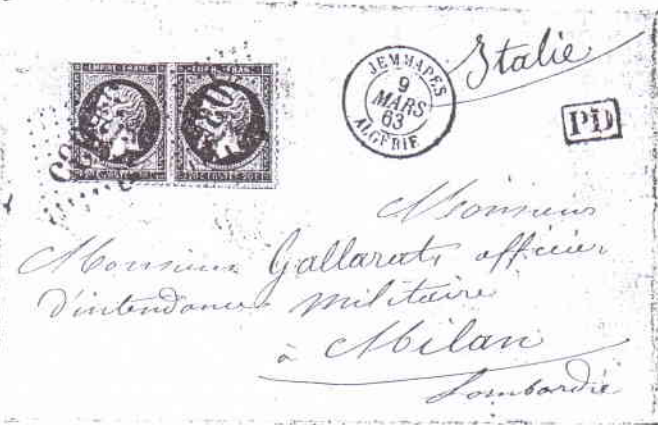 Italie
JEMMAPES
9
MARS
63
ALGÉRIE
PD
Monsieur
Monsieur Gallarati officier
d'intendance militaire
à Milan
Lombardie